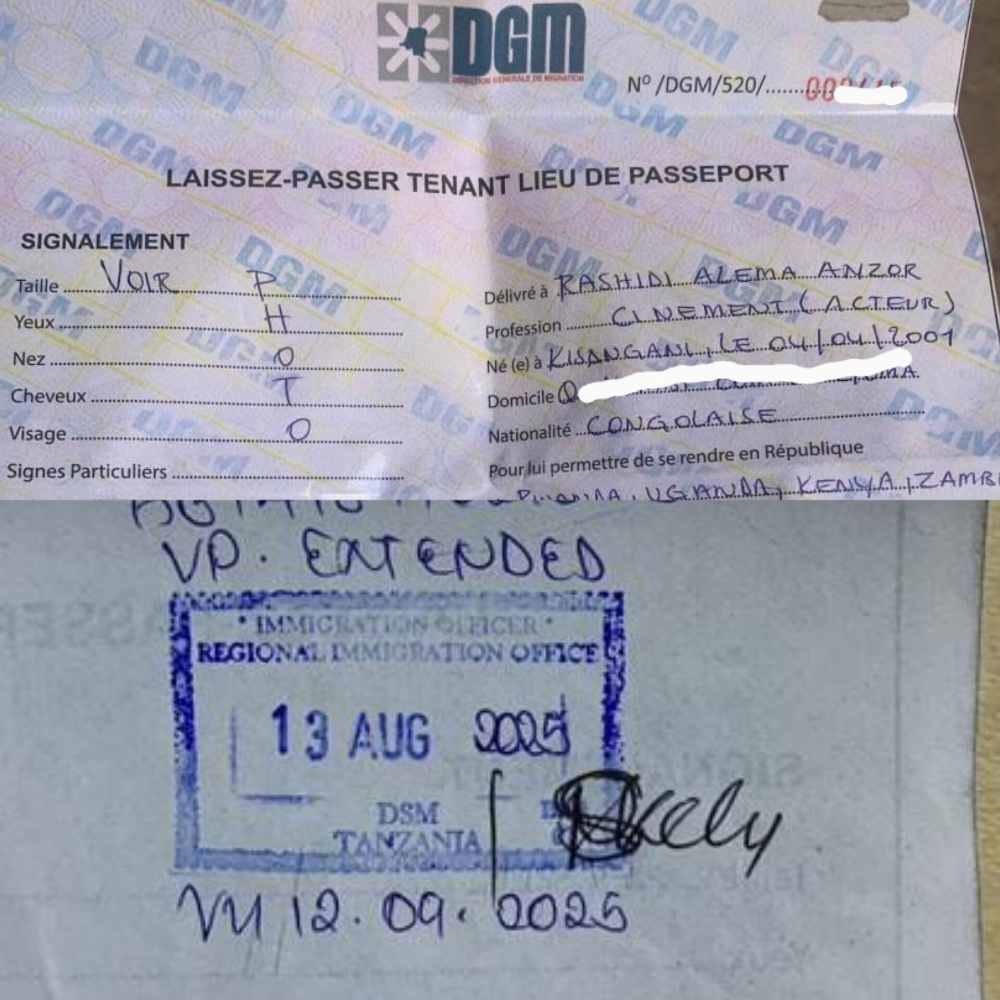 DGM
DIRECTION GENERALE DE MIGRATION
N° /DGM/520/.......00
LAISSEZ-PASSER TENANT LIEU DE PASSEPORT
SIGNALEMENT
Taille VOIR P
Yeux H
Nez O
Cheveux T
Visage O
Signes Particuliers
Délivré à RASHIDI ALEMA ANZOR
Profession CINEMENT (ACTEUR)
Né (e) à KISANGANI, LE 04/04/2001
Domicile
Nationalité CONGOLAISE
Pour lui permettre de se rendre en République
UGANDA, KENYA, ZAMBI
VP. EXTENDED
* IMMIGRATION OFFICER *
REGIONAL IMMIGRATION OFFICE
13 AUG 2025
DSM
TANZANIA
12.09.2025